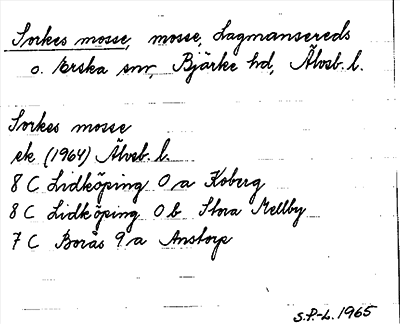 Sorkes mosse, mosse, Lagmansereds
o. Erska snr, Bjärke hd, Älvsb. l.
Sorkes mosse
ek. (1964) Älvsb. l.
8 C Lidköping 0 a Koberg
8 C Lidköping 0 b Stora Mellby
7 C Borås 9 a Anstorp
S.P.-L. 1965